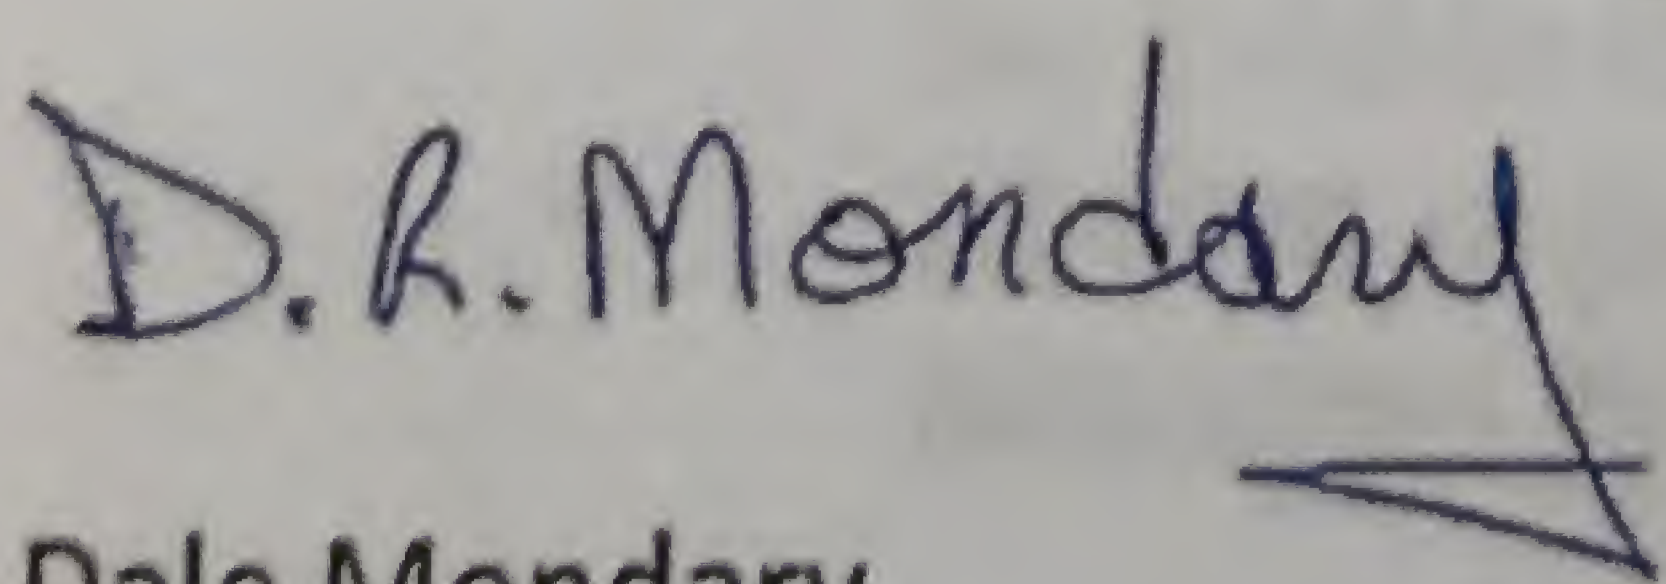 D. R. Mondary
Dale Mondary